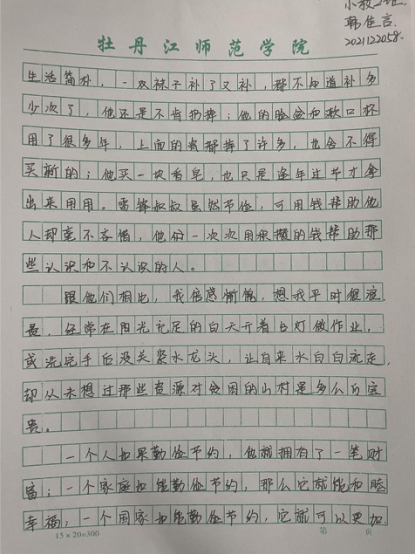 小教2班
韩佳言
2021122058
牡丹江师范学院
生活简朴,一双袜子补了又补,都不知道补多
少次了,他还是不肯扔掉;他的脸盆和漱口杯
用了很多年,上面的瓷都掉了许多,也舍不得
买新的;他买一块香皂,也只是逢年过节才拿
出来用用。雷锋叔叔虽然节俭,可用钱帮助他
人却毫不吝惜,他们一次次用积攒的钱帮助那
些认识和不认识的人。
跟他们相比,我倍感惭愧,想我平时很浪
费,经常在阳光充足的白天开着台灯做作业,
或洗完手后没关紧水龙头,让自来水白白流走,
却从未想过那些资源对贫困的山村是多么的宝
贵。
一个人如果勤俭节约,他就拥有了一笔财
富;一个家庭如能勤俭节约,那么它就能和睦
幸福;一个国家如能勤俭节约,它就可以更加
15×20=300
第 页